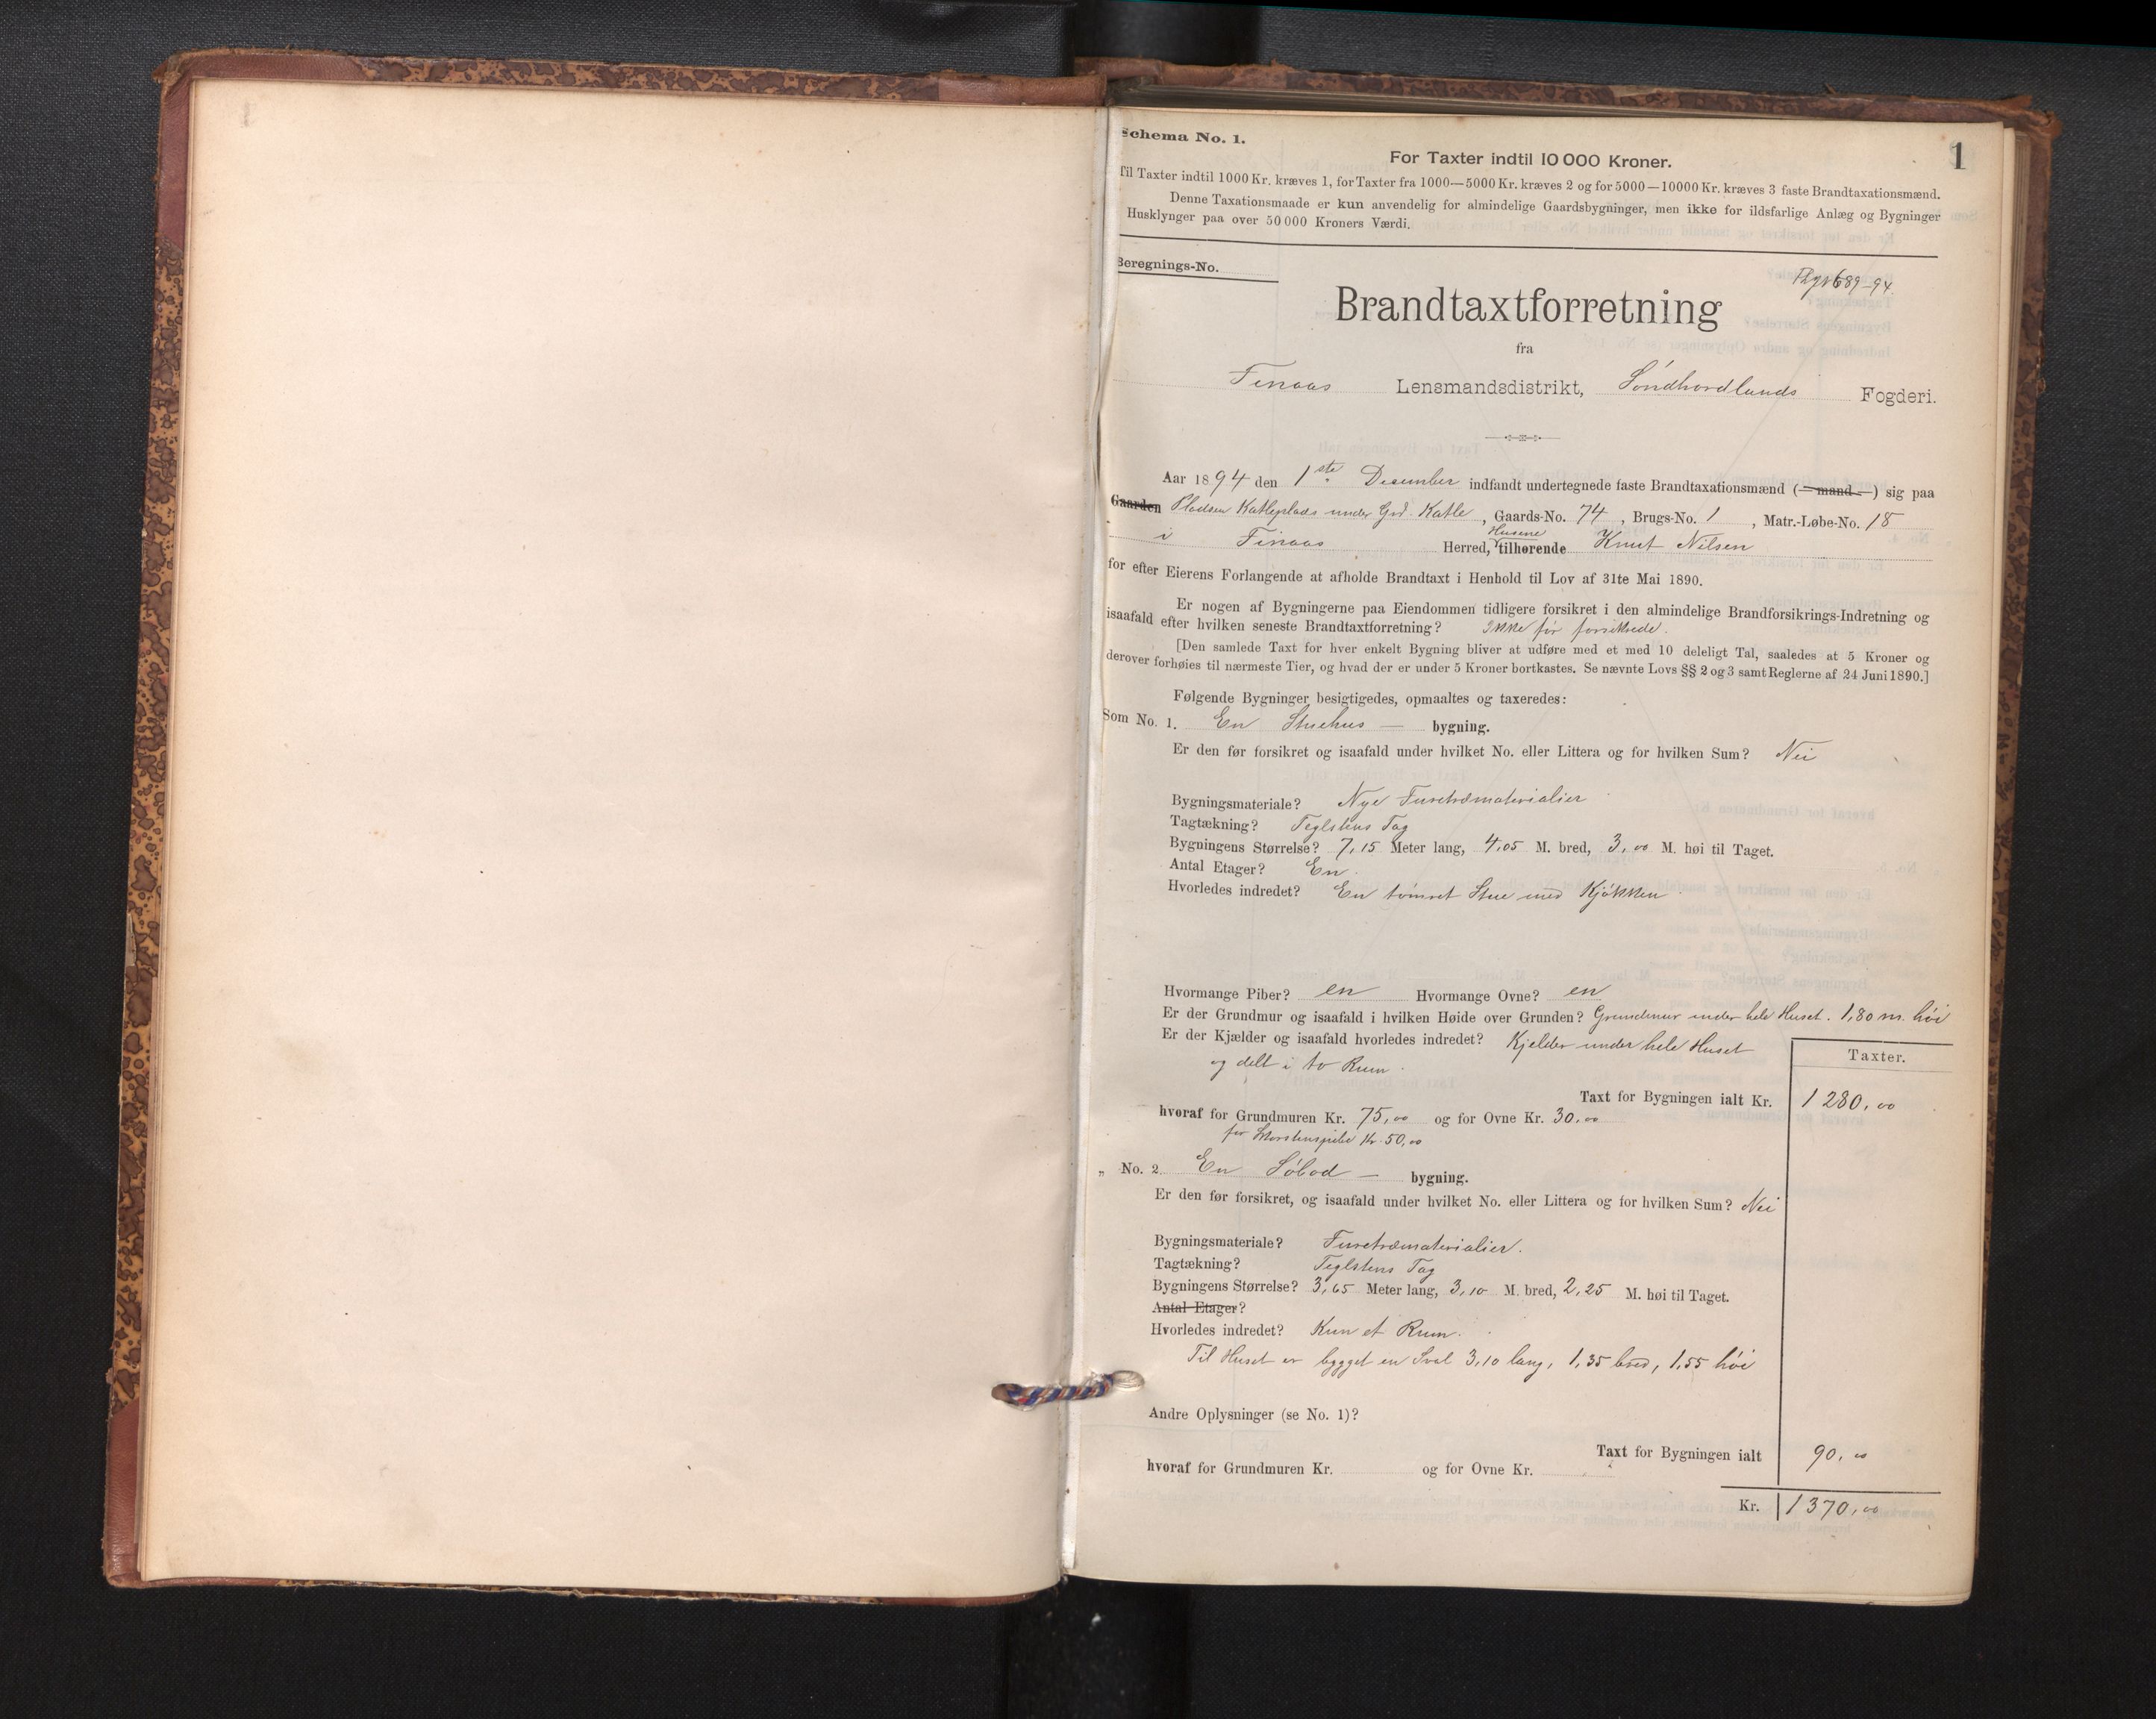 Schema No. 1.
1
For Taxter indtil 10 000 Kroner.
Til Taxter indtil 1000 Kr. kræves 1, for Taxter fra 1000—5000 Kr. kræves 2 og for 5000—10000 Kr. kræves 3 faste Brandtaxationsmænd.
Denne Taxationsmaade er kun anvendelig for almindelige Gaardsbygninger, men ikke for ildsfarlige Anlæg og Bygninger
Husklynger paa over 50 000 Kroners Værdi.
Beregnings-No.
689-94
Brandtaxtforretning
fra
Finaas Lensmandsdistrikt, Söndhordlands Fogderi.
Aar 1894 den 1ste December indfandt undertegnede faste Brandtaxationsmænd (—mand—) sig paa
Gaarden Pladsen Katleplads under Grd. Katle, Gaards-No. 74, Brugs-No. 1, Matr.-Løbe-No. 18
i Finaas Herred, Husene tilhørende Knut Nilsen
for efter Eierens Forlangende at afholde Brandtaxt i Henhold til Lov af 31te Mai 1890.
Er nogen af Bygningerne paa Eiendommen tidligere forsikret i den almindelige Brandforsikrings-Indretning og
isaafald efter hvilken seneste Brandtaxtforretning? Ikke før forsikrede.
[Den samlede Taxt for hver enkelt Bygning bliver at udføre med et med 10 deleligt Tal, saaledes at 5 Kroner og
derover forhøies til nærmeste Tier, og hvad der er under 5 Kroner bortkastes. Se nævnte Lovs §§ 2 og 3 samt Reglerne af 24 Juni 1890.]
Følgende Bygninger besigtigedes, opmaaltes og taxeredes:
Som No. 1. En Stuehus — bygning.
Er den før forsikret og isaafald under hvilket No. eller Littera og for hvilken Sum? Nei
Bygningsmateriale? Nye Furetræmaterialier
Tagtækning? Teglstens Tag
Bygningens Størrelse? 7,15 Meter lang, 4,05 M. bred, 3,00 M. høi til Taget.
Antal Etager? En.
Hvorledes indredet? En tömret Stue med Kjökken
Hvormange Piber? en Hvormange Ovne? en
Er der Grundmur og isaafald i hvilken Høide over Grunden? Grundmur under hele Huset. 1,80 m. höi
Er der Kjælder og isaafald hvorledes indredet? Kjelder under hele Huset
og delt i to Rum.
Taxter.
Taxt for Bygningen ialt Kr. 1280,00
hvoraf for Grundmuren Kr. 75,00 og for Ovne Kr. 30,00
for Skorstenspibe Kr. 50,00
„ No. 2. En Söbod — bygning.
Er den før forsikret, og isaafald under hvilket No. eller Littera og for hvilken Sum? Nei
Bygningsmateriale? Furetræmaterialier.
Tagtækning? Teglstens Tag
Bygningens Størrelse? 3,65 Meter lang, 3,10 M. bred, 2,25 M. høi til Taget.
Antal Etager?
Hvorledes indredet? Kun et Rum.
Til Huset er bygget en Sval 3,10 lang, 1,35 bred, 1,55 höi
Andre Oplysninger (se No. 1)?
Taxt for Bygningen ialt 90,00
hvoraf for Grundmuren Kr. og for Ovne Kr.
Kr. 1370,00